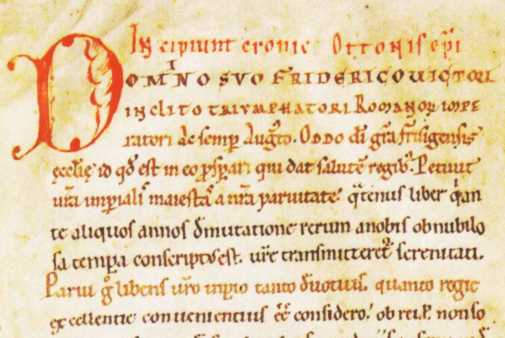 Incipiunt cronic Ottonis epi
DOMINO SVO FRIDERICO VICTORI
INCLITO TRIVMPHATORI ROMANOR IMPE
ratori ac semp Augto. Otto di gra frisigensis
ęcclię id qd est in eo psparı qui dat salute regib. Petiuit
vra imperialis maiestas a nra paruitate qtenus liber q an
te aliquos annos de mutatione rerum a nobis ob nubilo
sa tempora conscriptus est. vre transmitteret serenitati.
Parui g libens vro inpio tanto deuotius. quanto regie
excellentie conuenientius ee considero. ob rei.p. non so